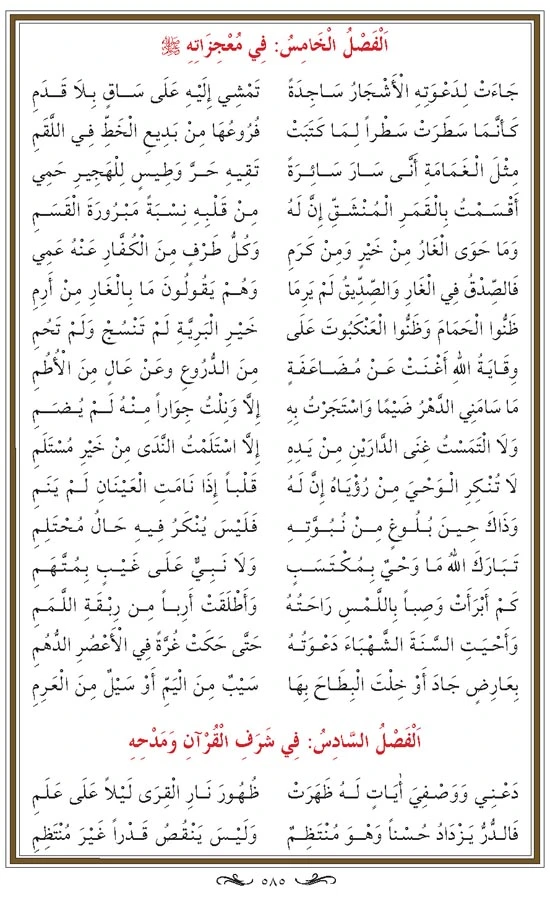 اَلْفَصْلُ الْخَامِسُ: فِي مُعْجِزَاتِهِ ﷺ
جَاءَتْ لِدَعْوَتِهِ الْأَشْجَارُ سَاجِدَةً تَمْشِي إِلَيْهِ عَلَى سَاقٍ بِلَا قَدَمِ
كَأَنَّمَا سَطَرَتْ سَطْراً لِمَا كَتَبَتْ فُرُوعُهَا مِنْ بَدِيعِ الْخَطِّ فِي اللَّقَمِ
مِثْلَ الْغَمَامَةِ أَنَّى سَارَ سَائِرَةً تَقِيهِ حَرَّ وَطِيسٍ لِلْهَجِيرِ حَمِي
أَقْسَمْتُ بِالْقَمَرِ الْمُنْشَقِّ إِنَّ لَهُ مِنْ قَلْبِهِ نِسْبَةً مَبْرُورَةَ الْقَسَمِ
وَمَا حَوَى الْغَارُ مِنْ خَيْرٍ وَمِنْ كَرَمِ وَكُلُّ طَرْفٍ مِنَ الْكُفَّارِ عَنْهُ عَمِي
فَالصِّدْقُ فِي الْغَارِ وَالصِّدِّيقُ لَمْ يَرِمَا وَهُمْ يَقُولُونَ مَا بِالْغَارِ مِنْ أَرِمِ
ظَنُّوا الْحَمَامَ وَظَنُّوا الْعَنْكَبُوتَ عَلَى خَيْرِ الْبَرِيَّةِ لَمْ تَنْسُجْ وَلَمْ تَحُمِ
وِقَايَةُ اللهِ أَغْنَتْ عَنْ مُضَاعَفَةٍ مِنَ الدُّرُوعِ وَعَنْ عَالٍ مِنَ الْأُطُمِ
مَا سَامَنِي الدَّهْرُ ضَيْمًا وَاسْتَجَرْتُ بِهِ إِلَّا وَنِلْتُ جِوَاراً مِنْهُ لَمْ يُضَمِ
وَلَا الْتَمَسْتُ غِنَى الدَّارَيْنِ مِنْ يَدِهِ إِلَّا اسْتَلَمْتُ النَّدَى مِنْ خَيْرِ مُسْتَلَمِ
لَا تُنْكِرِ الْوَحْيَ مِنْ رُؤْيَاهُ إِنَّ لَهُ قَلْباً إِذَا نَامَتِ الْعَيْنَانِ لَمْ يَنَمِ
وَذَاكَ حِينَ بُلُوغٍ مِنْ نُبُوَّتِهِ فَلَيْسَ يُنْكَرُ فِيهِ حَالُ مُحْتَلِمِ
تَبَارَكَ اللهُ مَا وَحْيٌ بِمُكْتَسَبٍ وَلَا نَبِيٌّ عَلَى غَيْبٍ بِمُتَّهَمِ
كَمْ أَبْرَأَتْ وَصِباً بِاللَّمْسِ رَاحَتُهُ وَأَطْلَقَتْ أَرِباً مِن رِبْقَةِ اللَّمَمِ
وَأَحْيَتِ السَّنَةَ الشَّهْبَاءَ دَعْوَتُهُ حَتَّى حَكَتْ غُرَّةً فِي الْأَعْصُرِ الدُّهُمِ
بِعَارِضٍ جَادَ أَوْ خِلْتَ الْبِطَاحَ بِهَا سَيْبٌ مِنَ الْيَمِّ أَوْ سَيْلٌ مِنَ الْعَرِمِ
اَلْفَصْلُ السَّادِسُ: فِي شَرَفِ الْقُرْآنِ وَمَدْحِهِ
دَعْنِي وَوَصْفِيَ أٰيَاتٍ لَهُ ظَهَرَتْ ظُهُورَ نَارِ الْقِرَى لَيْلاً عَلَى عَلَمِ
فَالدُّرُّ يَزْدَادُ حُسْناً وَهْوَ مُنْتَظِمٌ وَلَيْسَ يَنْقُصُ قَدْراً غَيْرَ مُنْتَظِمِ
٥٨٥